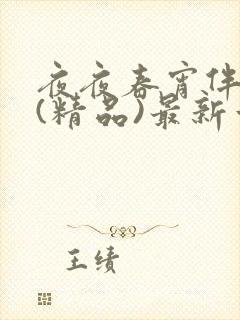 夜夜春宵伴
(精品)最新
王绩